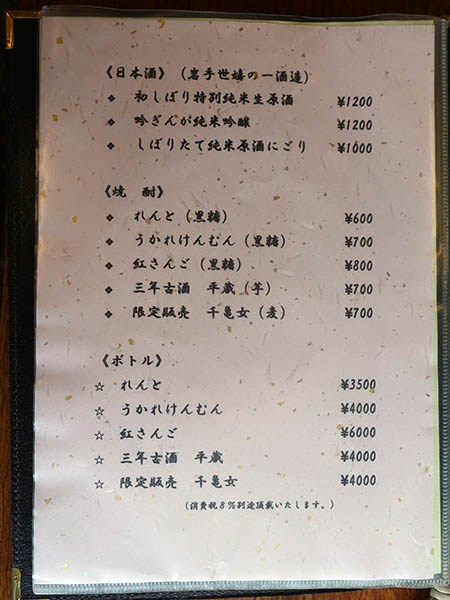 《日本酒》(岩手世嬉の一酒造)
❖ 初しぼり特別純米生原酒 ¥1200
❖ 吟ぎんが純米吟醸 ¥1200
❖ しぼりたて純米原酒にごり ¥1000
《焼 酎》
❖ れんと(黒糖) ¥600
❖ うかれけんむん(黒糖) ¥700
❖ 紅さんご(黒糖) ¥800
❖ 三年古酒 平蔵(芋) ¥700
❖ 限定販売 千亀女(麦) ¥700
《ボトル》
☆ れんと ¥3500
☆ うかれけんむん ¥4000
☆ 紅さんご ¥6000
☆ 三年古酒 平蔵 ¥4000
☆ 限定販売 千亀女 ¥4000
(消費税8%別途頂戴いたします。)